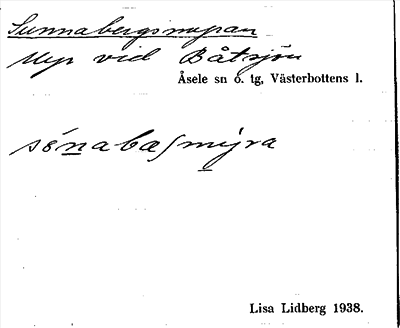 Sunnabergsmyran
Myr vid Båtsjön
Åsele sn o. tg, Västerbottens l.
sénabæʃmýra
Lisa Lidberg 1938.